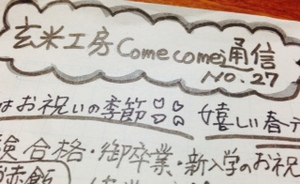 玄米工房Comecome通信
NO.27
はお祝いの季節 嬉しい春
験合格・御卒業・新入学のお祝
赤飯